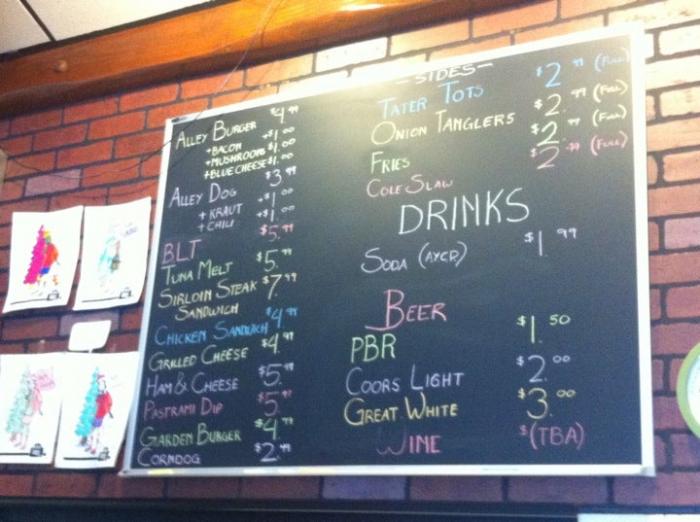 ALLEY BURGER $4.99
+BACON +$1.00
+MUSHROOMS +$1.00
+BLUE CHEESE +$1.00
ALLEY DOG $3.99
+ KRAUT +$1.00
+ CHILI +$1.00
BLT $5.99
TUNA MELT $5.99
SIRLOIN STEAK $7.99
SANDWICH
CHICKEN SANDWICH $4.99
GRILLED CHEESE $4.99
HAM & CHEESE $5.99
PASTRAMI DIP $5.99
GARDEN BURGER $4.99
CORNDOG $2.99
—SIDES—
TATER TOTS $2.99 (FULL)
ONION TANGLERS $2.99 (FULL)
FRIES $2.99 (FULL)
COLE SLAW $2.99 (FULL)
DRINKS
SODA (AYCD) $1.99
BEER
PBR $1.50
COORS LIGHT $2.00
GREAT WHITE $3.00
WINE $(TBA)